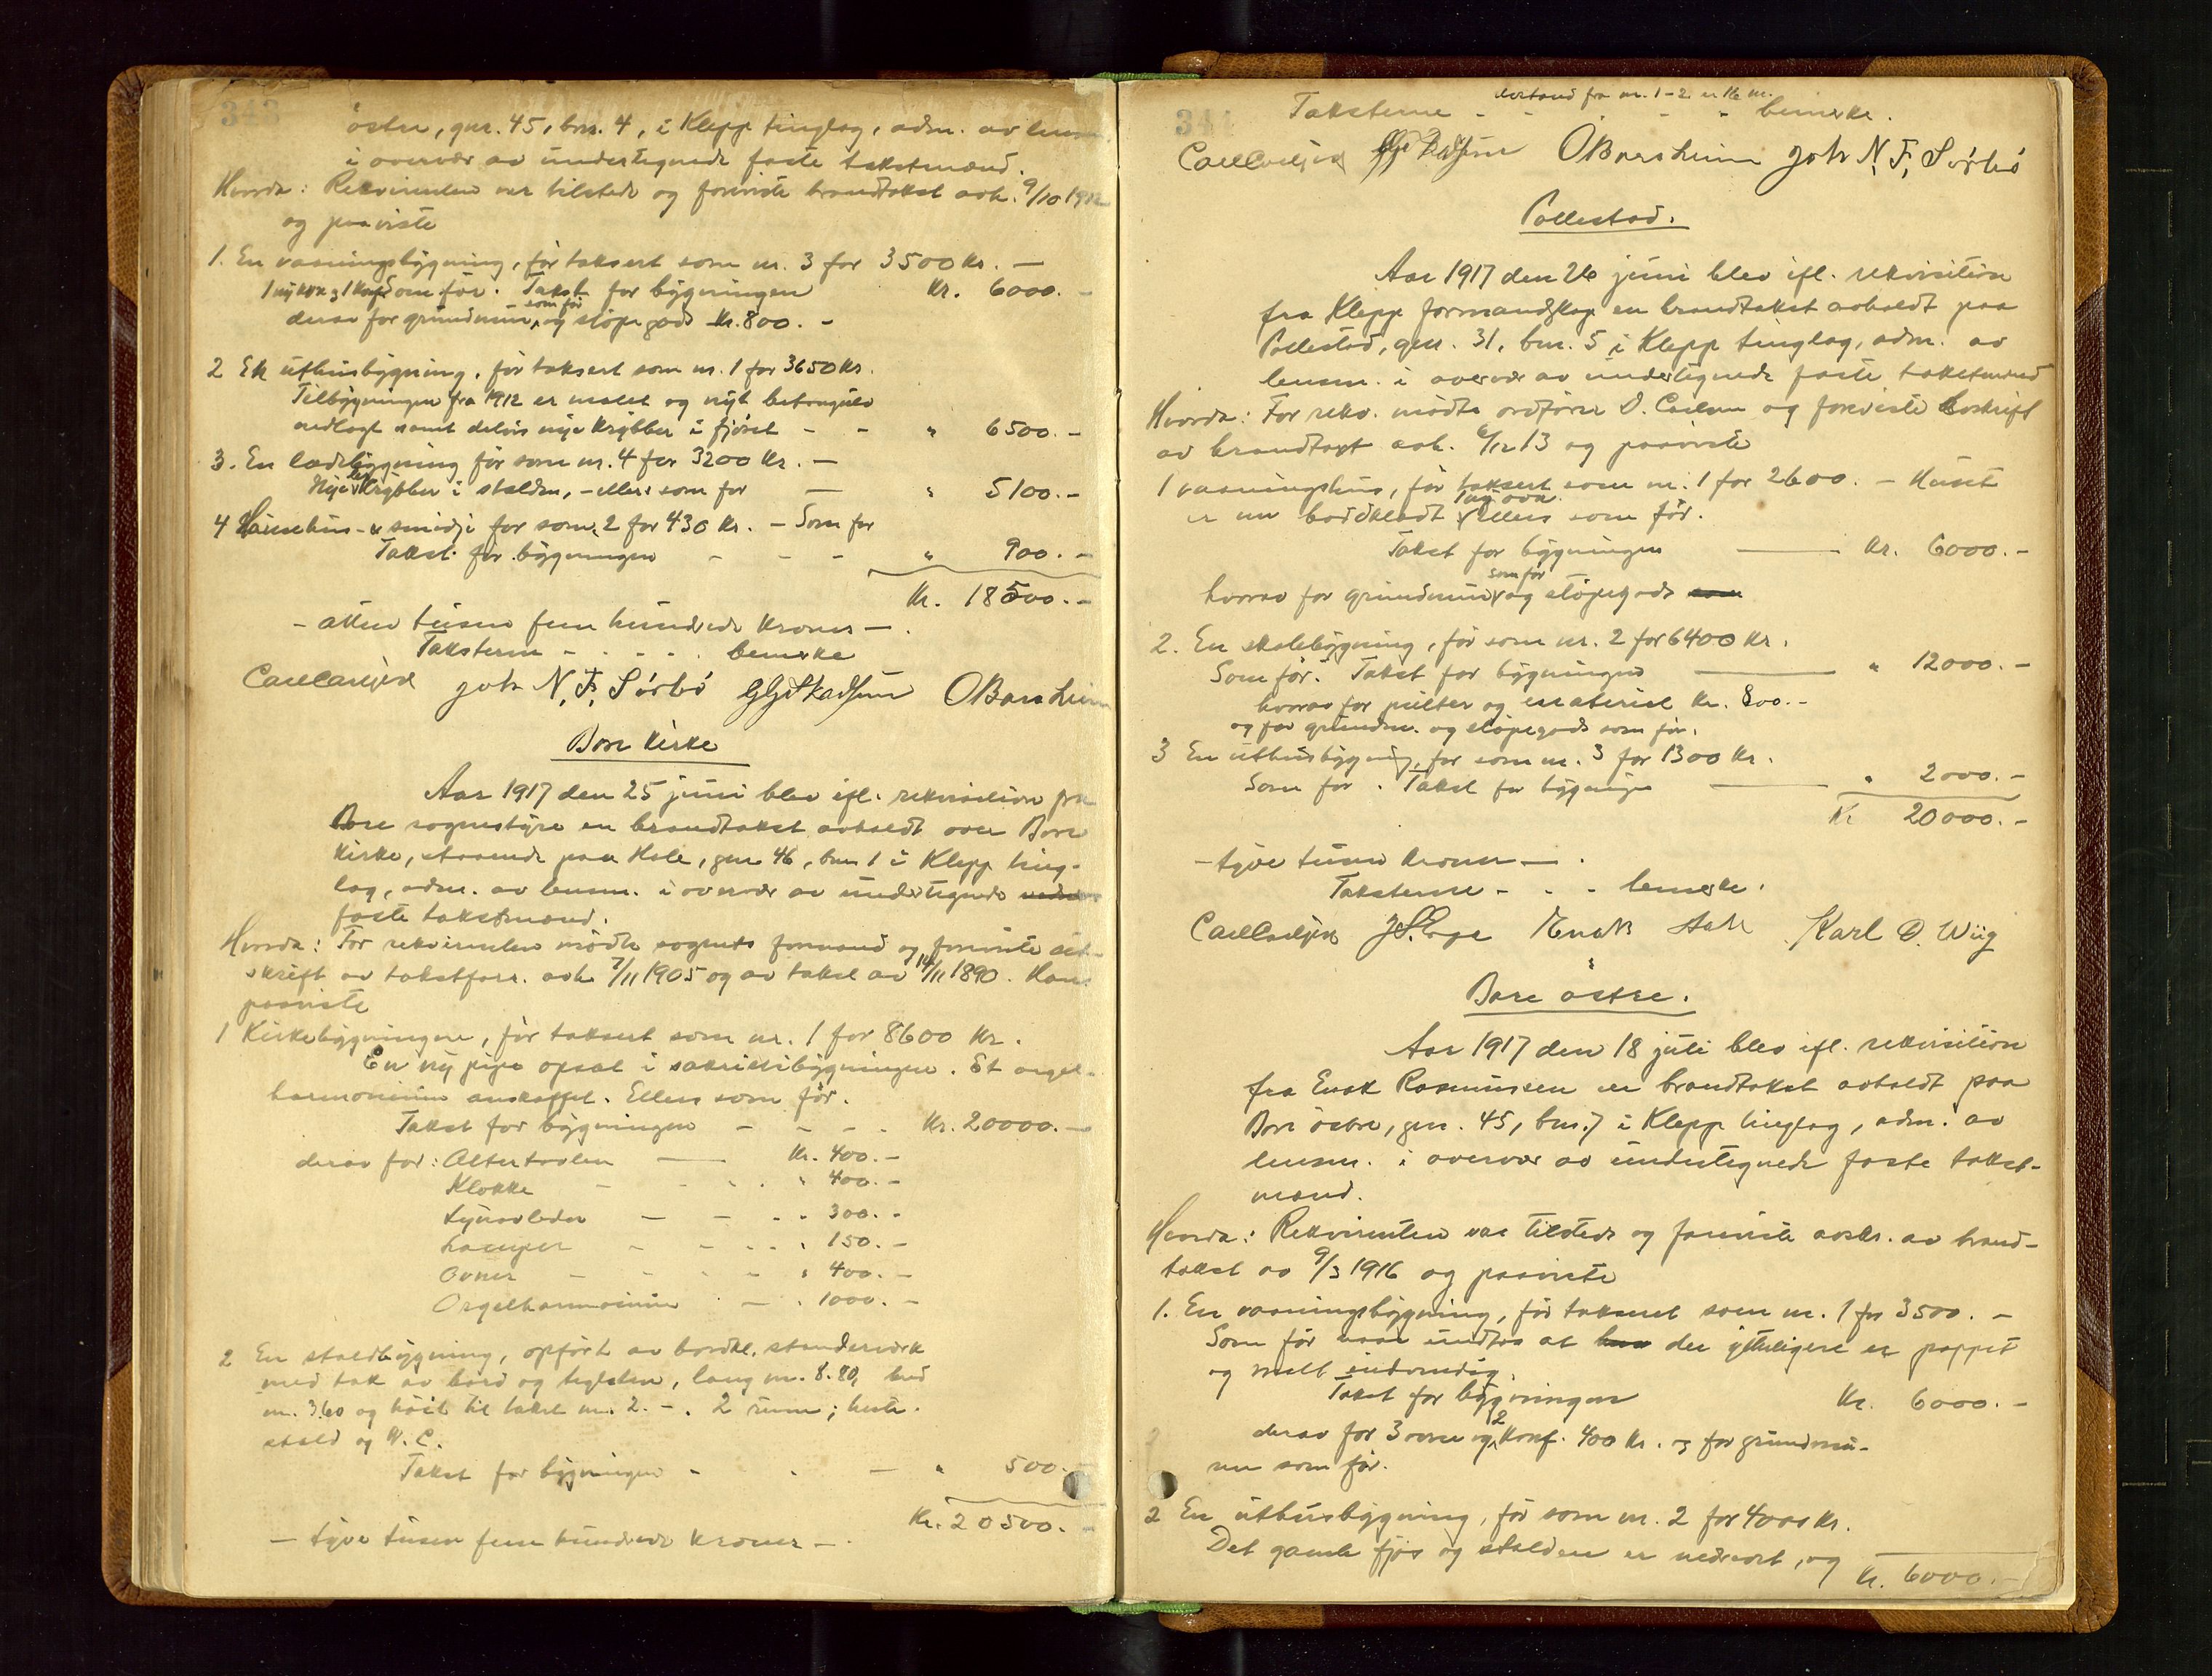 343
østre, gnr. 45, bnr. 4, i Klepp tinglag, adm. av lensm.
i overvær av undertegnede faste takstmænd.
Hvorda: Rekvirenten var tilstede og foreviste brandtakst avh. 9/10 1912
og paaviste
1. En vaaningsbygning, før taksert som nr. 3 for 3500 kr. —
1 ny ovn og 1 komf. Som før. Takst for bygningen Kr. 6000. -
derav for grundmur som før og støpegods Kr. 800. -
2 En uthusbygning, før taksert som nr. 1 for 3650 kr.
Tilbygningen fra 1912 er malet og nyt betongulv
nedlagt samt delvis nye krybber i fjøset - - " 6500. -
3. En ladebygning før som nr. 4 for 3200 kr. —
Nye krybber i stalden, - ellers som før — " 5100. -
4 Hønsehus - & smidje før som 2 for 430 kr. - Som før
Takst for bygningen - - - " 900. -
Kr. 18500. -
- atten tusen fem hundrede kroner - .
Taksterne - - - - bemerke
Carl Carlsen Joh N. F. Sørbø G G Skadsem O Barsheim
Bore Kirke
Aar 1917 den 25 juni blev ifl. rekvisition fra
Bore sognestyre en brandtakst avholdt over Bore
Kirke, staaende paa Hole, gnr 46, bnr 1 i Klepp ting-
lag, adm. av lensm. i overvær av undertegnede
faste takstmænd.
Hvorda: For rekvirenten mødte sognets formand og foreviste ut-
skrift av takstforr. avh. 7/11 1905 og av takst av 14/11 1890. Han
paaviste
1 Kirkebygningen, før taksert som nr. 1 for 8600 Kr.
En ny pipe opsat i sakristibygningen. Et orgel-
harmonium anskaffet. Ellers som før.
Takst for bygningen - - - - Kr. 20000. -
derav for: Altertavlen — Kr. 400. -
Klokke - - - - " 400. -
Lynavleder - - - - " 300. -
Lamper - - - - " 150. -
Ovner - - - - " 400. -
Orgelharmonium - - " 1000. -
2 En staldbygning, opført av bordkl. stenderverk
med tak av bord og teglsten, lang m. 8.80, bred
m. 3.60 og høit til taket m. 2. - . 2 rum; heste-
stald og W. C.
Takst for bygningen - - - " 500. -
Kr. 20500. -
- tyve tusen fem hundrede kroner -
344
avstand fra nr. 1-2 er 16 m.
Taksterne - - - - - bemerke.
Carl Carlsen G G Skadsem O Barsheim Joh N. F. Sørbø
Pollestad.
Aar 1917 den 26 juni blev ifl. rekvisition
fra Klepp formandskap en brandtakst avholdt paa
Pollestad, gnr. 31, bnr. 5 i Klepp tinglag, adm. av
lensm. i overvær av undertegnede faste takstmænd
Hvorda: For rekv. mødte ordfører O. Carlsen og foreviste avskrift
av brandtakst avh. 6/12 13 og paaviste
1 vaaningshus, før taksert som nr. 1 for 2600. - Huset
er nu bordklædt 1 ny ovn. ellers som før.
Takst for bygningen — Kr. 6000. -
hvorav for grundmur som før og støpegods
2. En skolebygning, før som nr. 2 for 6400 kr.
Som før. Takst for bygningen — " 12000. -
hvorav for pulter og materiel kr. 800. -
og for grundm. og støpegods som før.
3 En uthusbygning, før som nr. 3 for 1300 kr.
Som før. Takst for bygningen — " 2000. -
Kr 20000. -
- tyve tusen kroner — .
Taksterne - - - bemerke.
Carl Carlsen Karl O. Wiig
Bore østre.
Aar 1917 den 18 juli blev ifl. rekvisition
fra Enok Rasmussen en brandtakst avholdt paa
Bore østre, gnr. 45, bnr. 7 i Klepp tinglag, adm. av
lensm. i overvær av undertegnede faste takst-
mænd.
Hvorda: Rekvirenten var tilstede og foreviste avskr. av brand-
takst av 9/3 1916 og paaviste
1. En vaaningsbygning, før taksert som nr. 1 for 3500. -
Som før undtas at der ytterligere er pappet
og malt indvendig.
Takst for bygningen Kr. 6000. -
derav for 3 ovne og 2 komf. 400 kr. og for grundmu-
ren som før.
2 En uthusbygning, før som nr. 2 for 4000 kr.
Det gamle fjøs og stalden er nedrevet, og Kr. 6000. -